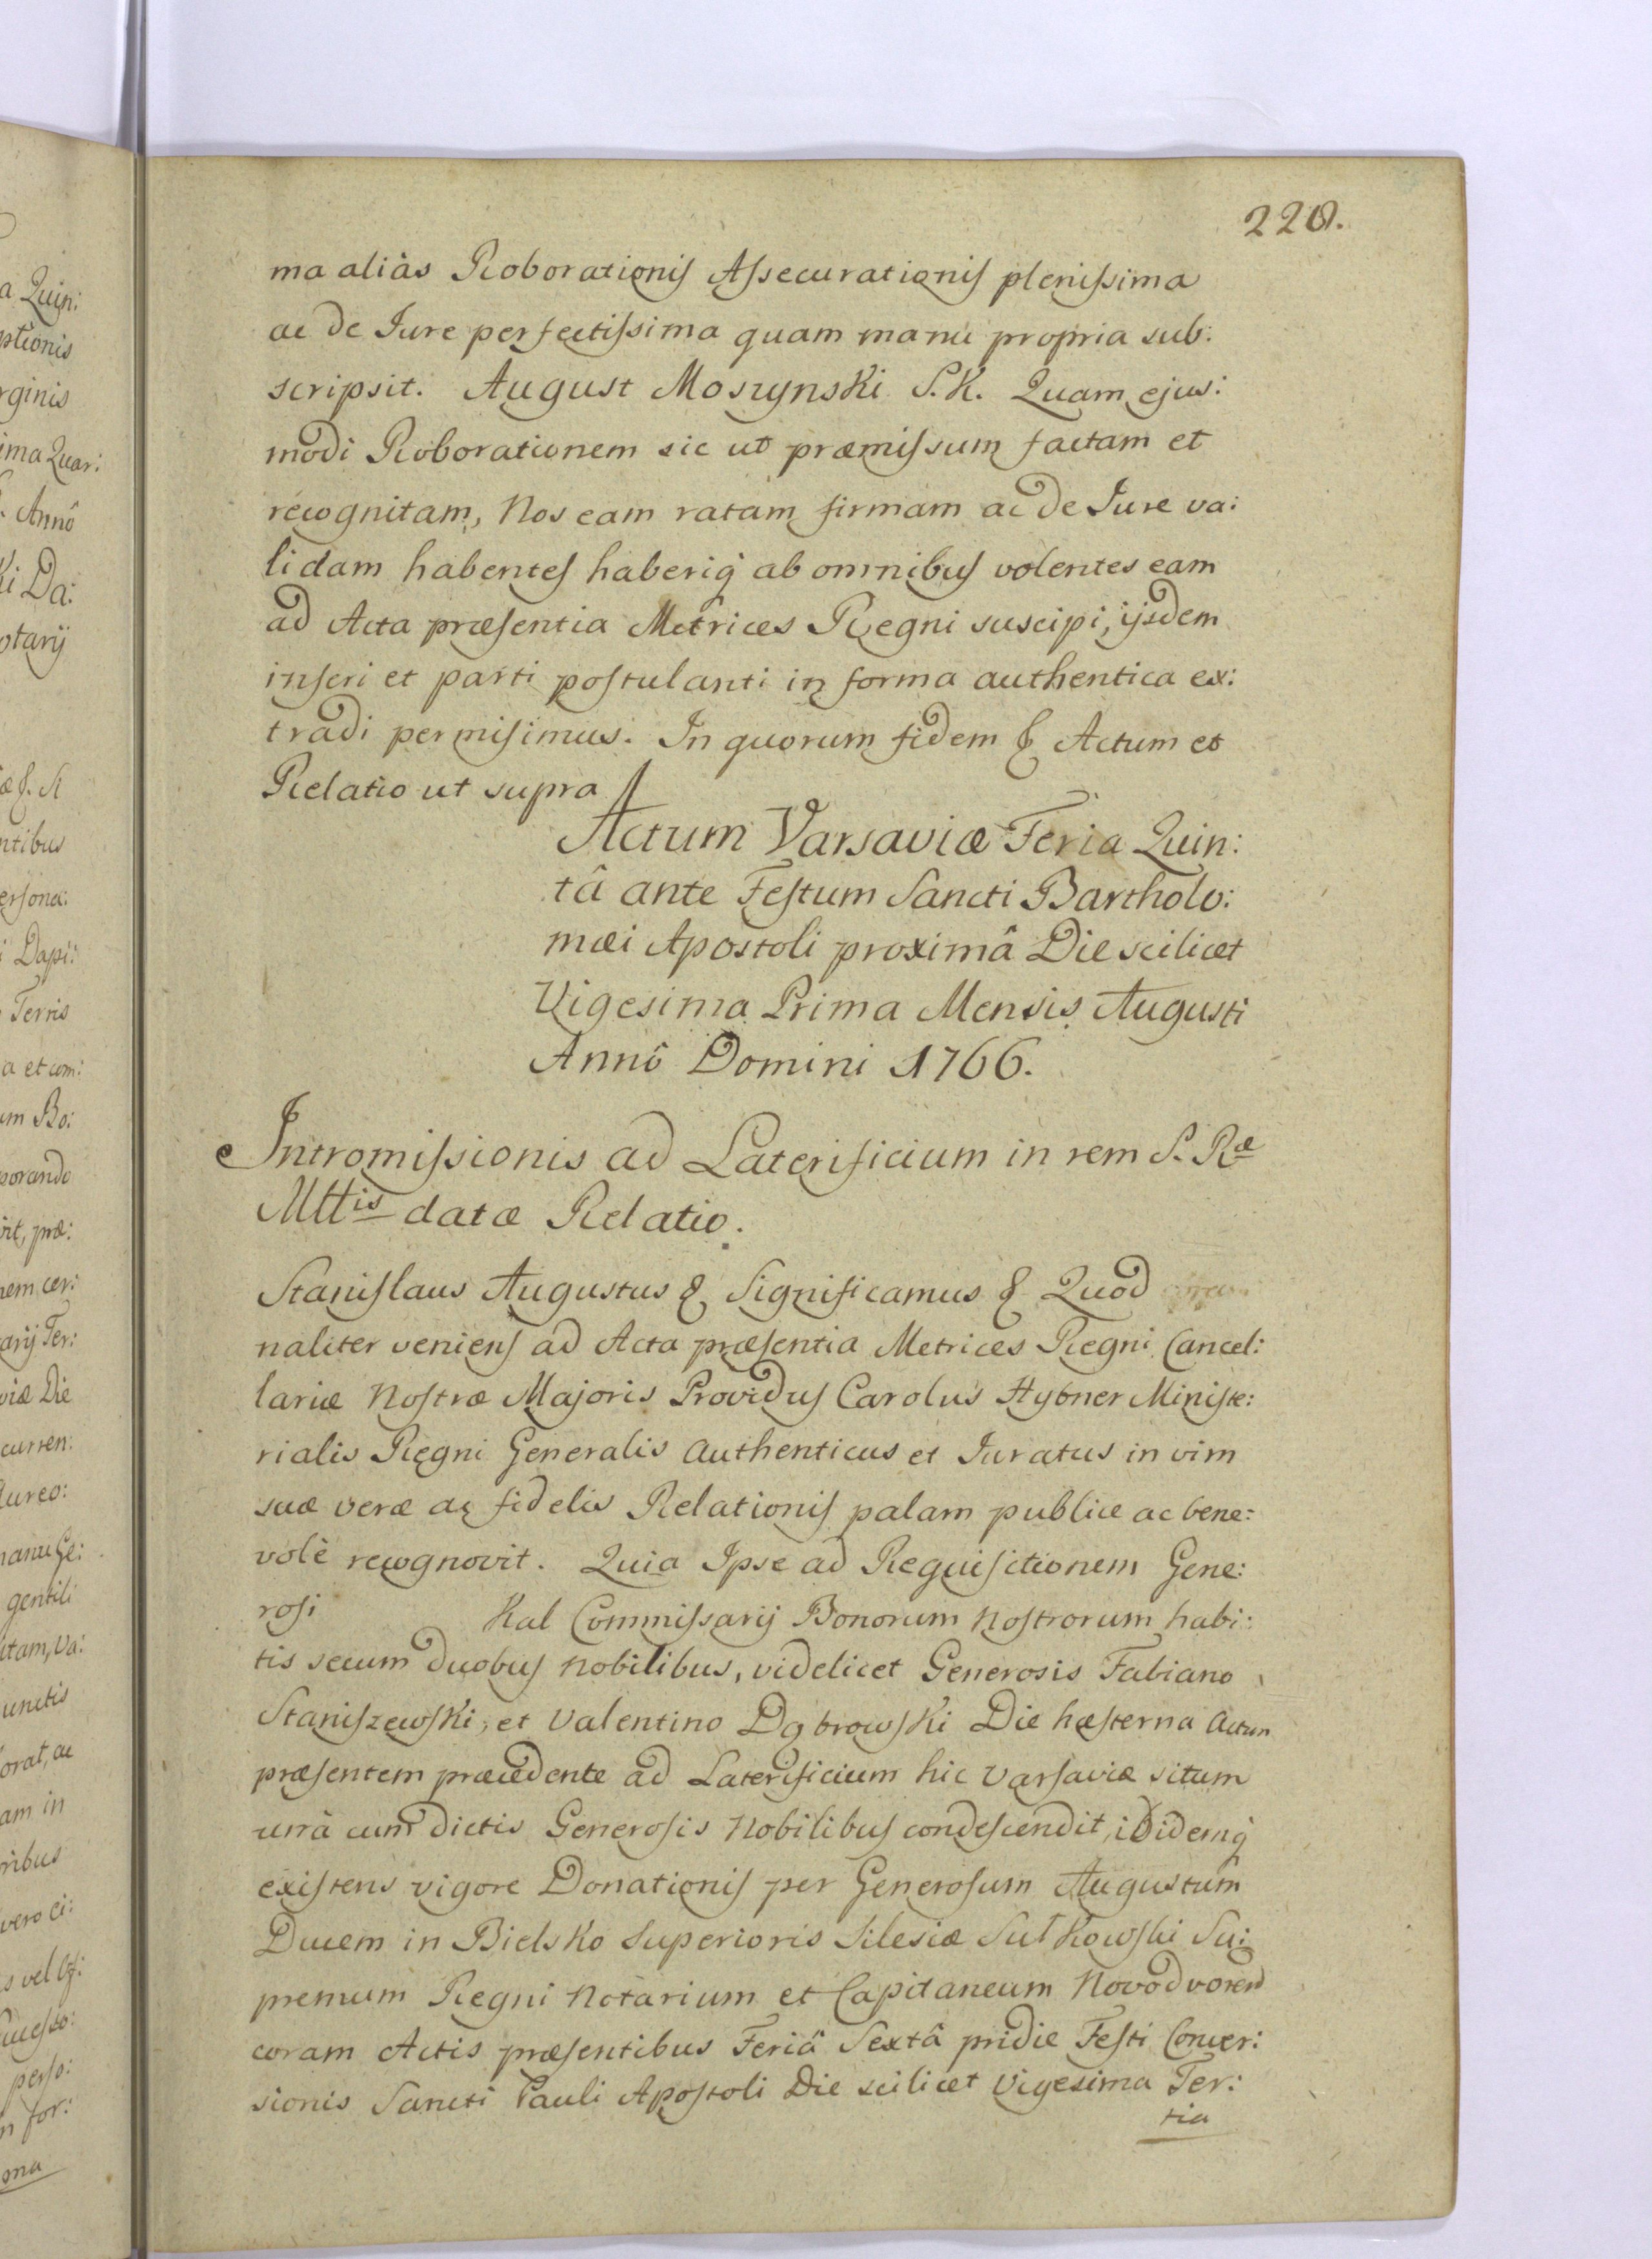 228.
ma aliàs Roborationis Assecurationis plenissima
ac de Iure perfectissima quam manu propria sub:
scripsit. August Moszynski S.K. Quam ejus:
modi Roborationem sic ut præmissum factam et
recognitam, Nos eam ratam firmam ac de Iure va:
lidam habentes haberiq ab omnibus volentes eam
ad Acta præsentia Metrices Regni suscipi, ijsdem
inseri et parti postulanti in forma authentica ex:
tradi permisimus. In quorum fidem & Actum et
Relatio ut supra
Actum Varsaviæ Feria Quin:
tâ ante Festum Sancti Bartholo:
mæi Apostoli proximâ Die scilicet
Vigesima Prima Mensis Augusti
Annô Domini 1766.
Intromissionis ad Laterificium in rem S. Ræ
Mttis datæ Relatio.
Stanislaus Augustus & Significamus & Quod
naliter veniens ad Acta præsentia Metrices Regni Cancel:
lariæ Nostræ Majoris Providus Carolus Hybner Ministe:
rialis Regni Generalis Authenticus et Iuratus in vim
suæ veræ ac fidelis Relationis palam publice ac bene:
volè recognovit. Quia Ipse ad Requisitionem Gene:
rosi Kal Commissarij Bonorum Nostrorum habi:
tis secum duobus Nobilibus, videlicet Generosis Fabiano
Staniszewski, et Valentino Dąbrowski Die hæsterna Actum
præsentem præcedente ad Laterificium hic Varsaviæ situm
unà cum dictis Generosis Nobilibus condescendit, ibidemq
existens vigore Donationis per Generosum Augustum
Ducem in Bielsko Superioris Silesiæ Sułkowski Su:
premum Regni Notarium et Capitaneum Novodvoren
coram Actis præsentibus Feriâ Sextâ pridie Festi Conver:
sionis Sancti Pauli Apostoli Die scilicet Vigesima Ter:
tia